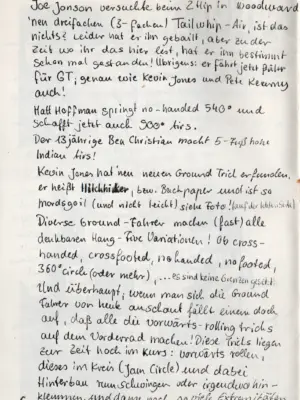 Joe Jonson versuchte beim 2 Hip in Woodward
'nen dreifachen (3-fachen) Tailwhip-Air, ist das
nichts? Leider hat er ihn gebailt, aber zu der
Zeit wo ihr das hier lest, hat er ihn bestimmt
schon mal gestanden! Übrigens: er fährt jetzt
für GT, genau wie Kevin Jones und Pete Kearney
auch!
Matt Hoffman springt no-handed 540° und
schafft jetzt auch 900° Airs.
Der 13jährige Ben Christian macht 5-Fuß hohe
Indian Airs!
Kevin Jones hat 'nen neuen Ground Trick erfunden.
er heißt Hitchhiker, bzw. Backpaper und ist so
mordsgeil (und nicht leicht) siehe Foto!
Diverse Ground-Fahrer machen (fast) alle
denkbaren Hang-Five Variationen! Ob cross-
handed, crossfooted, no handed, no footed,
360° Circle (oder mehr), ...es sind keine Grenzen gesetzt.
Und überhaupt, wenn man sich die Ground
Fahrer von heute anschaut fällt einem doch
auf, daß alle die vorwärts-rolling tricks
auf dem Vorderrad machen! Diese Tricks liegen
zur Zeit hoch im Kurs: vorwärts rollen,
dieses im Kreis (Jam Circle) und dabei
Hinterbau rumschwingen oder irgendwo hin-
klemmen, und dann noch so viele Extremitäten